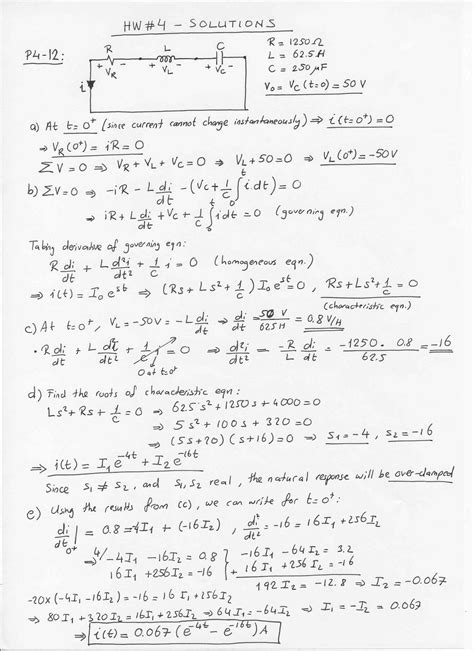 HW#4 - SOLUTIONS
P4-12:
R L C
+ VR - + VL - + VC -
i
R = 1250Ω
L = 62.5H
C = 250μF
V₀ = Vc(t=0) = 50V
a) At t=0⁺ (since current cannot change instantaneously) ⇒ i(t=0⁺) = 0
⇒ VR(0⁺) = iR = 0
ΣV = 0 ⇒ VR + VL + VC = 0 ⇒ VL + 50 = 0 ⇒ VL(0⁺) = -50V
b) ΣV=0 ⇒ -iR - L di/dt - (Vc + 1/C ∫ i dt) = 0
⇒ iR + L di/dt + Vc + 1/C ∫ i dt = 0 (governing eqn.)
Taking derivative of governing eqn:
R di/dt + L d²i/dt² + 1/C i = 0 (homogeneous eqn.)
⇒ i(t) = I₀ e^st ⇒ (Rs + Ls² + 1/C) I₀ e^st = 0, Rs + Ls² + 1/C = 0
(characteristic eqn)
c) At t=0⁺, VL = -50V = -L di/dt ⇒ di/dt = 50V/62.5H = 0.8 V/H
• R di/dt + L di²/dt² + 1/C i = 0 ⇒ d²i/dt² = -R/L di/dt = -1250 . 0.8/62.5 = -16
0 at t=0⁺
d) Find the roots of characteristic eqn:
Ls² + Rs + 1/C = 0 ⇒ 62.5 s² + 1250 s + 4000 = 0
⇒ 5s² + 100s + 320 = 0
⇒ (5s+20)(s+16) = 0 ⇒ s₁ = -4, s₂ = -16
⇒ i(t) = I₁ e^-4t + I₂ e^-16t
Since s₁ ≠ s₂, and s₁, s₂ real, the natural response will be over-damped
e) Using the results from (c), we can write for t=0⁺:
di/dt |0⁺ = 0.8 = -4I₁ + (-16I₂), di²/dt² = -16 = 16I₁ + 256I₂
⇒ 4/ -4I₁ - 16I₂ = 0.8
16I₁ + 256I₂ = -16
-16I₁ - 64I₂ = 3.2
+ 16I₁ + 256I₂ = -16
192I₂ = -12.8 ⇒ I₂ = -0.067
-20x(-4I₁ - 16I₂) = -16 = 16I₁ + 256I₂
⇒ 80I₁ + 320I₂ = 16I₁ + 256I₂ ⇒ 64I₁ = -64I₂ ⇒ I₁ = -I₂ = 0.067
⇒ i(t) = 0.067 (e^-4t - e^-16t) A